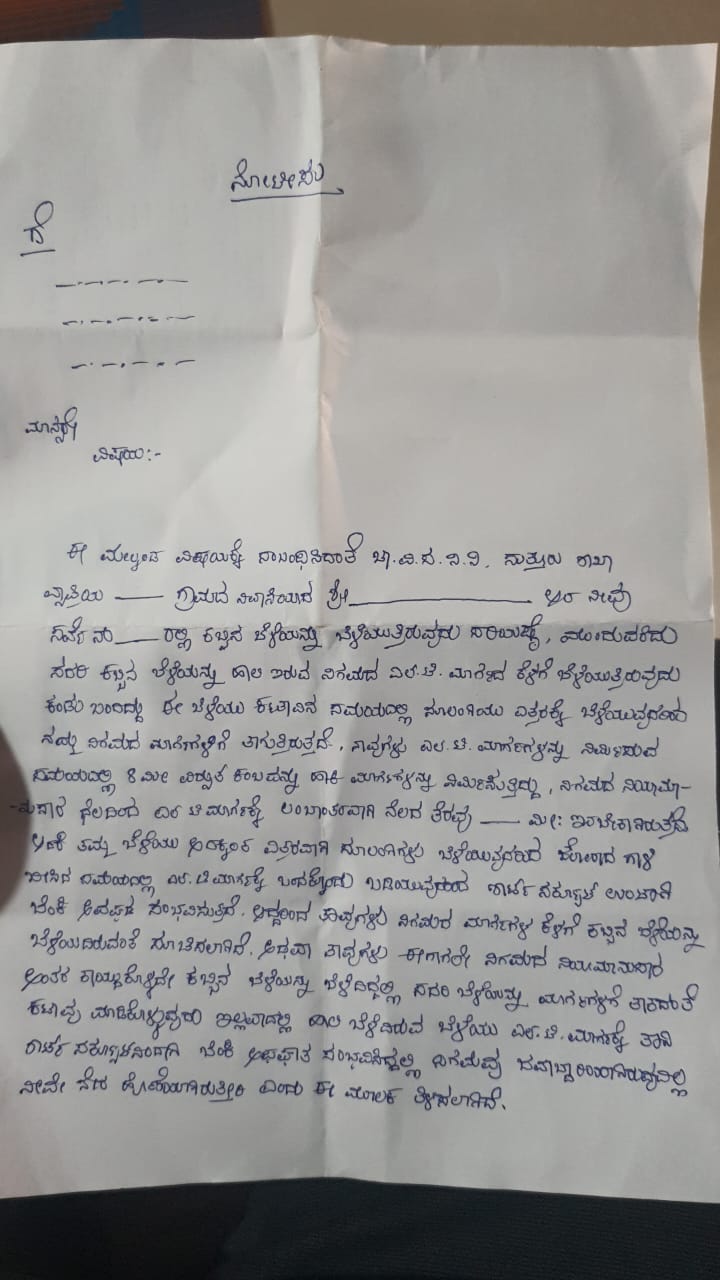 ನೋಟೀಸು
ಗೆ
ಮಾನ್ಯರೇ
ವಿಷಯ:-
ಈ ಮೇಲ್ಕಂಡ ವಿಷಯಕ್ಕೆ ಸಂಬಂಧಿಸಿದಂತೆ ಚಾ.ವಿ.ಸ.ನಿ.ನಿ. ಸುತ್ತೂರು ಶಾಖಾ
ವ್ಯಾಪ್ತಿಯ ___ ಗ್ರಾಮದ ನಿವಾಸಿಯಾದ ಶ್ರೀ ___ ಆದ ನೀವು
ಸರ್ವೆ ನಂ ___ ರಲ್ಲಿ ಕಬ್ಬಿನ ಬೆಳೆಯನ್ನು ಬೆಳೆಯುತ್ತಿರುವುದು ಸರಿಯಷ್ಟೆ, ಮುಂದುವರಿದು
ಸದರಿ ಕಬ್ಬಿನ ಬೆಳೆಯನ್ನು ಹಾಲಿ ಇರುವ ನಿಗಮದ ಎಲ್.ಟಿ. ಮಾರ್ಗದ ಕೆಳಗೆ ಬೆಳೆಯುತ್ತಿರುವುದು
ಕಂಡು ಬಂದಿದ್ದು ಈ ಬೆಳೆಯು ಕಟಾವಿನ ಸಮಯದಲ್ಲಿ ಸೂಲಂಗಿಯು ಎತ್ತರಕ್ಕೆ ಬೆಳೆಯುವುದರಿಂದ
ನಮ್ಮ ನಿಗಮದ ಮಾರ್ಗಗಳಿಗೆ ತಾಗುತ್ತಿರುತ್ತದೆ, ನಾವುಗಳು ಎಲ್.ಟಿ. ಮಾರ್ಗಗಳನ್ನು ನಿರ್ಮಿಸುವ
ಸಮಯದಲ್ಲಿ 8 ಮೀ ವಿದ್ಯುತ್ ಕಂಬವನ್ನು ಹಾಕಿ ಮಾರ್ಗಗಳನ್ನು ನಿರ್ಮಿಸುತ್ತಿದ್ದು, ನಿಗಮದ ನಿಯಮಾ-
-ನುಸಾರ ನೆಲದಿಂದ ಎಲ್ ಟಿ ಮಾರ್ಗಕ್ಕೆ ಲಂಬಾಂತರವಾಗಿ ನೆಲದ ತೆರವು ___ ಮೀ: ಇರಬೇಕಾಗಿರುತ್ತದೆ
ಆದರೆ ತಮ್ಮ ಬೆಳೆಯು ಎತ್ತರವಾಗಿ ಸೂಲಂಗಿಗಳು ಬೆಳೆಯುವುದರಿಂದ ಜೋರಾದ ಗಾಳಿ
ಬೀಸಿದ ಸಮಯದಲ್ಲಿ ಎಲ್.ಟಿ ಮಾರ್ಗಕ್ಕೆ ಬಡಿಯುವುದರಿಂದ ಶಾರ್ಟ್ ಸರ್ಕ್ಯೂಟ್ ಉಂಟಾಗಿ
ಬೆಂಕಿ ಅವಘಡ ಸಂಭವಿಸುತ್ತಿದೆ. ಆದ್ದರಿಂದ ತಾವುಗಳು ನಿಗಮದ ಮಾರ್ಗಗಳ ಕೆಳಗೆ ಕಬ್ಬಿನ ಬೆಳೆಯನ್ನು
ಬೆಳೆಯದಿರುವಂತೆ ಸೂಚಿಸಲಾಗಿದೆ. ಅಥವಾ ತಾವುಗಳು ಈಗಾಗಲೇ ನಿಗಮದ ನಿಯಮಾನುಸಾರ
ಅಂತರ ಕಾಯ್ದುಕೊಳ್ಳದೇ ಕಬ್ಬಿನ ಬೆಳೆಯನ್ನು ಬೆಳೆದಿದ್ದಲ್ಲಿ ಸದರಿ ಬೆಳೆಯನ್ನು ಮಾರ್ಗಗಳಿಗೆ ತಾಗದಂತೆ
ಕಟಾವು ಮಾಡಿಕೊಳ್ಳುವುದು ಇಲ್ಲವಾದಲ್ಲಿ ಹಾಲಿ ಬೆಳೆದಿರುವ ಬೆಳೆಯು ಎಲ್.ಟಿ. ಮಾರ್ಗಕ್ಕೆ ತಾಗಿ
ಶಾರ್ಟ್ ಸರ್ಕ್ಯೂಟ್‌ನಿಂದಾಗಿ ಬೆಂಕಿ ಅಪಘಾತ ಸಂಭವಿಸಿದ್ದಲ್ಲಿ ನಿಗಮವು ಜವಾಬ್ದಾರಿಯಾಗಿರುವುದಿಲ್ಲ
ನೀವೇ ನೇರ ಹೊಣೆಯಾಗಿರುತ್ತೀರಿ ಎಂದು ಈ ಮೂಲಕ ತಿಳಿಸಲಾಗಿದೆ.